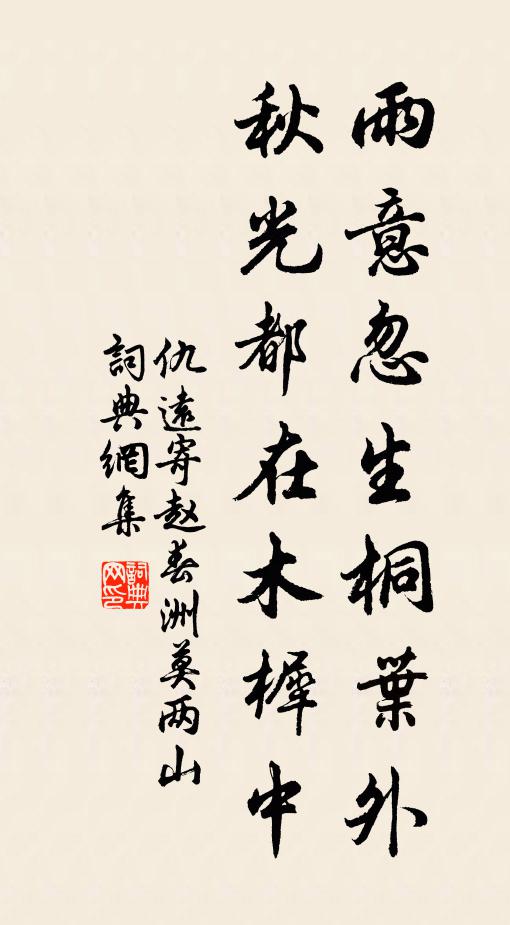 雨意忽生桐葉外
秋光都在木樨中
仇遠寄赵春洲莫两山
詞典網集
詞典网印